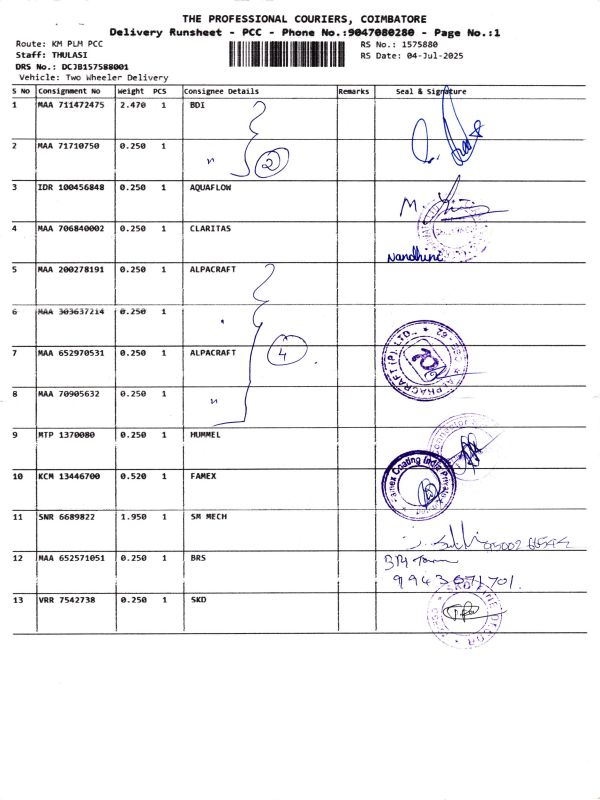 THE PROFESSIONAL COURIERS, COIMBATORE
Delivery Runsheet - PCC - Phone No.:9047080280 - Page No.:1
Route: KM PLM PCC
RS No.: 1575880
Staff: THULASI
RS Date: 04-Jul-2025
DRS No.: DCJB157588001
Vehicle: Two Wheeler Delivery
S No Consignment No Weight PCS Consignee Details Remarks Seal & Signature
1 MAA 711472475 2.470 1 BDI
2 MAA 71710750 0.250 1 " 2
3 IDR 100456848 0.250 1 AQUAFLOW
4 MAA 706840002 0.250 1 CLARITAS
Nandhini
5 MAA 200278191 0.250 1 ALPACRAFT
6 MAA 303637214 0.250 1
7 MAA 652970531 0.250 1 ALPACRAFT 4
ALPHACRAFT (P) LTD.,
8 MAA 70905632 0.250 1 "
9 MTP 1370080 0.250 1 HUMMEL
10 KCM 13446700 0.520 1 FAMEX
Famex Coating India Private Limited
11 SNR 6689822 1.950 1 SM MECH
12 MAA 652571051 0.250 1 BRS
13 VRR 7542738 0.250 1 SKD